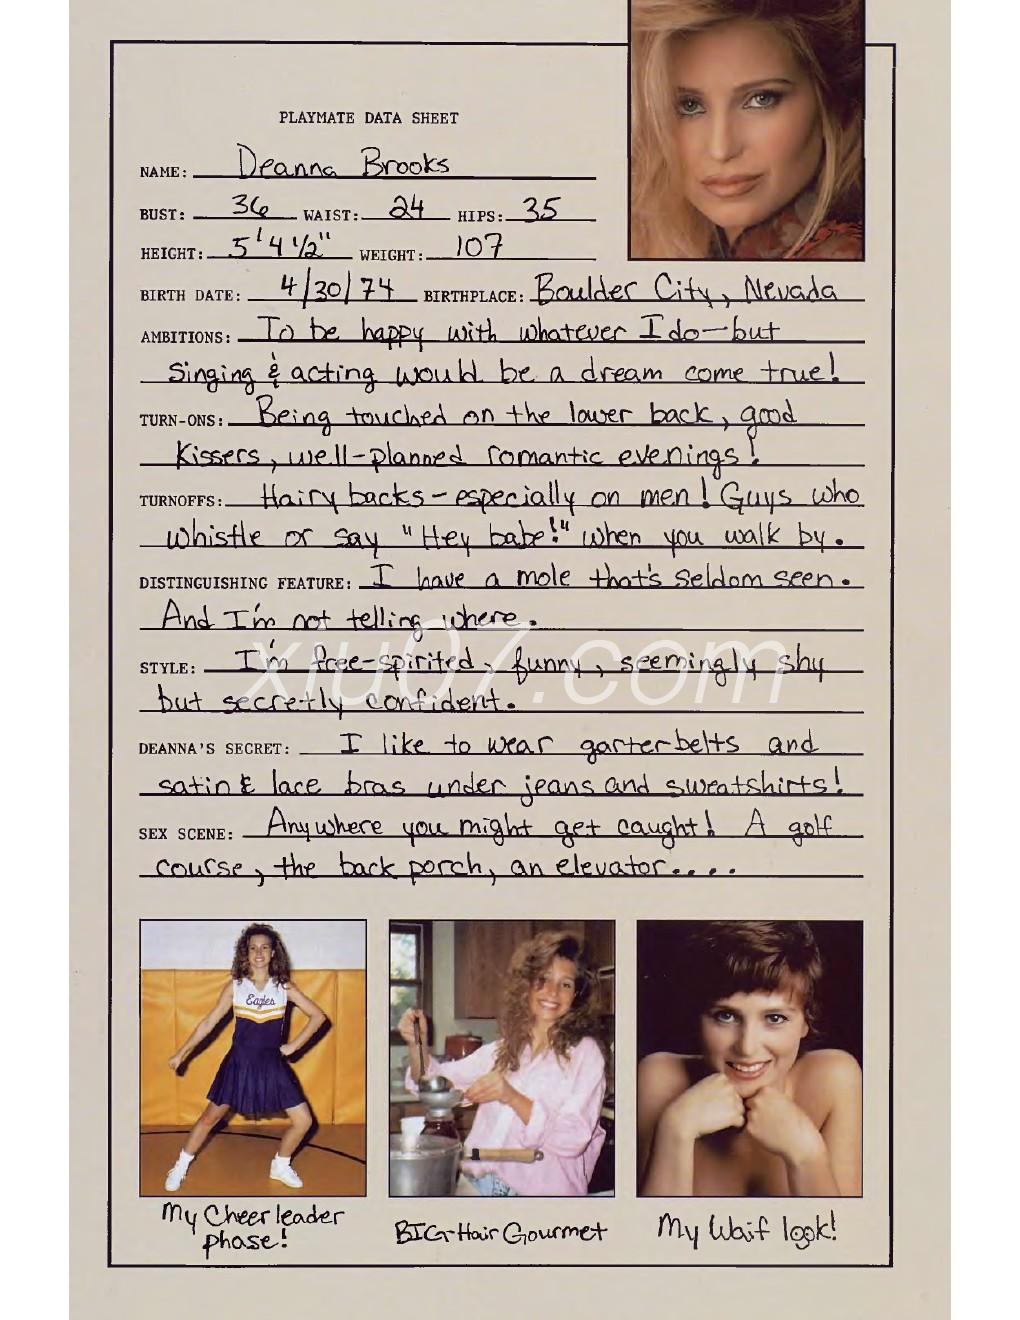 PLAYMATE DATA SHEET
NAME: Deanna Brooks
BUST: 36 WAIST: 24 HIPS: 35
HEIGHT: 5'4 1/2" WEIGHT: 107
BIRTH DATE: 4/30/74 BIRTHPLACE: Boulder City, Nevada
AMBITIONS: To be happy with whatever I do—but
singing & acting would be a dream come true!
TURN-ONS: Being touched on the lower back, good
kissers, well-planned romantic evenings!
TURNOFFS: Hairy backs - especially on men! Guys who
whistle or say "Hey babe!" when you walk by.
DISTINGUISHING FEATURE: I have a mole that's seldom seen.
And I'm not telling where.
xiu07.com
STYLE: I'm free-spirited, funny, seemingly shy
but secretly confident.
DEANNA'S SECRET: I like to wear garterbelts and
satin & lace bras under jeans and sweatshirts!
SEX SCENE: Anywhere you might get caught! A golf
course, the back porch, an elevator....
Eagles
My Cheerleader
phase!
BIG-Hair Gourmet
My Waif look!